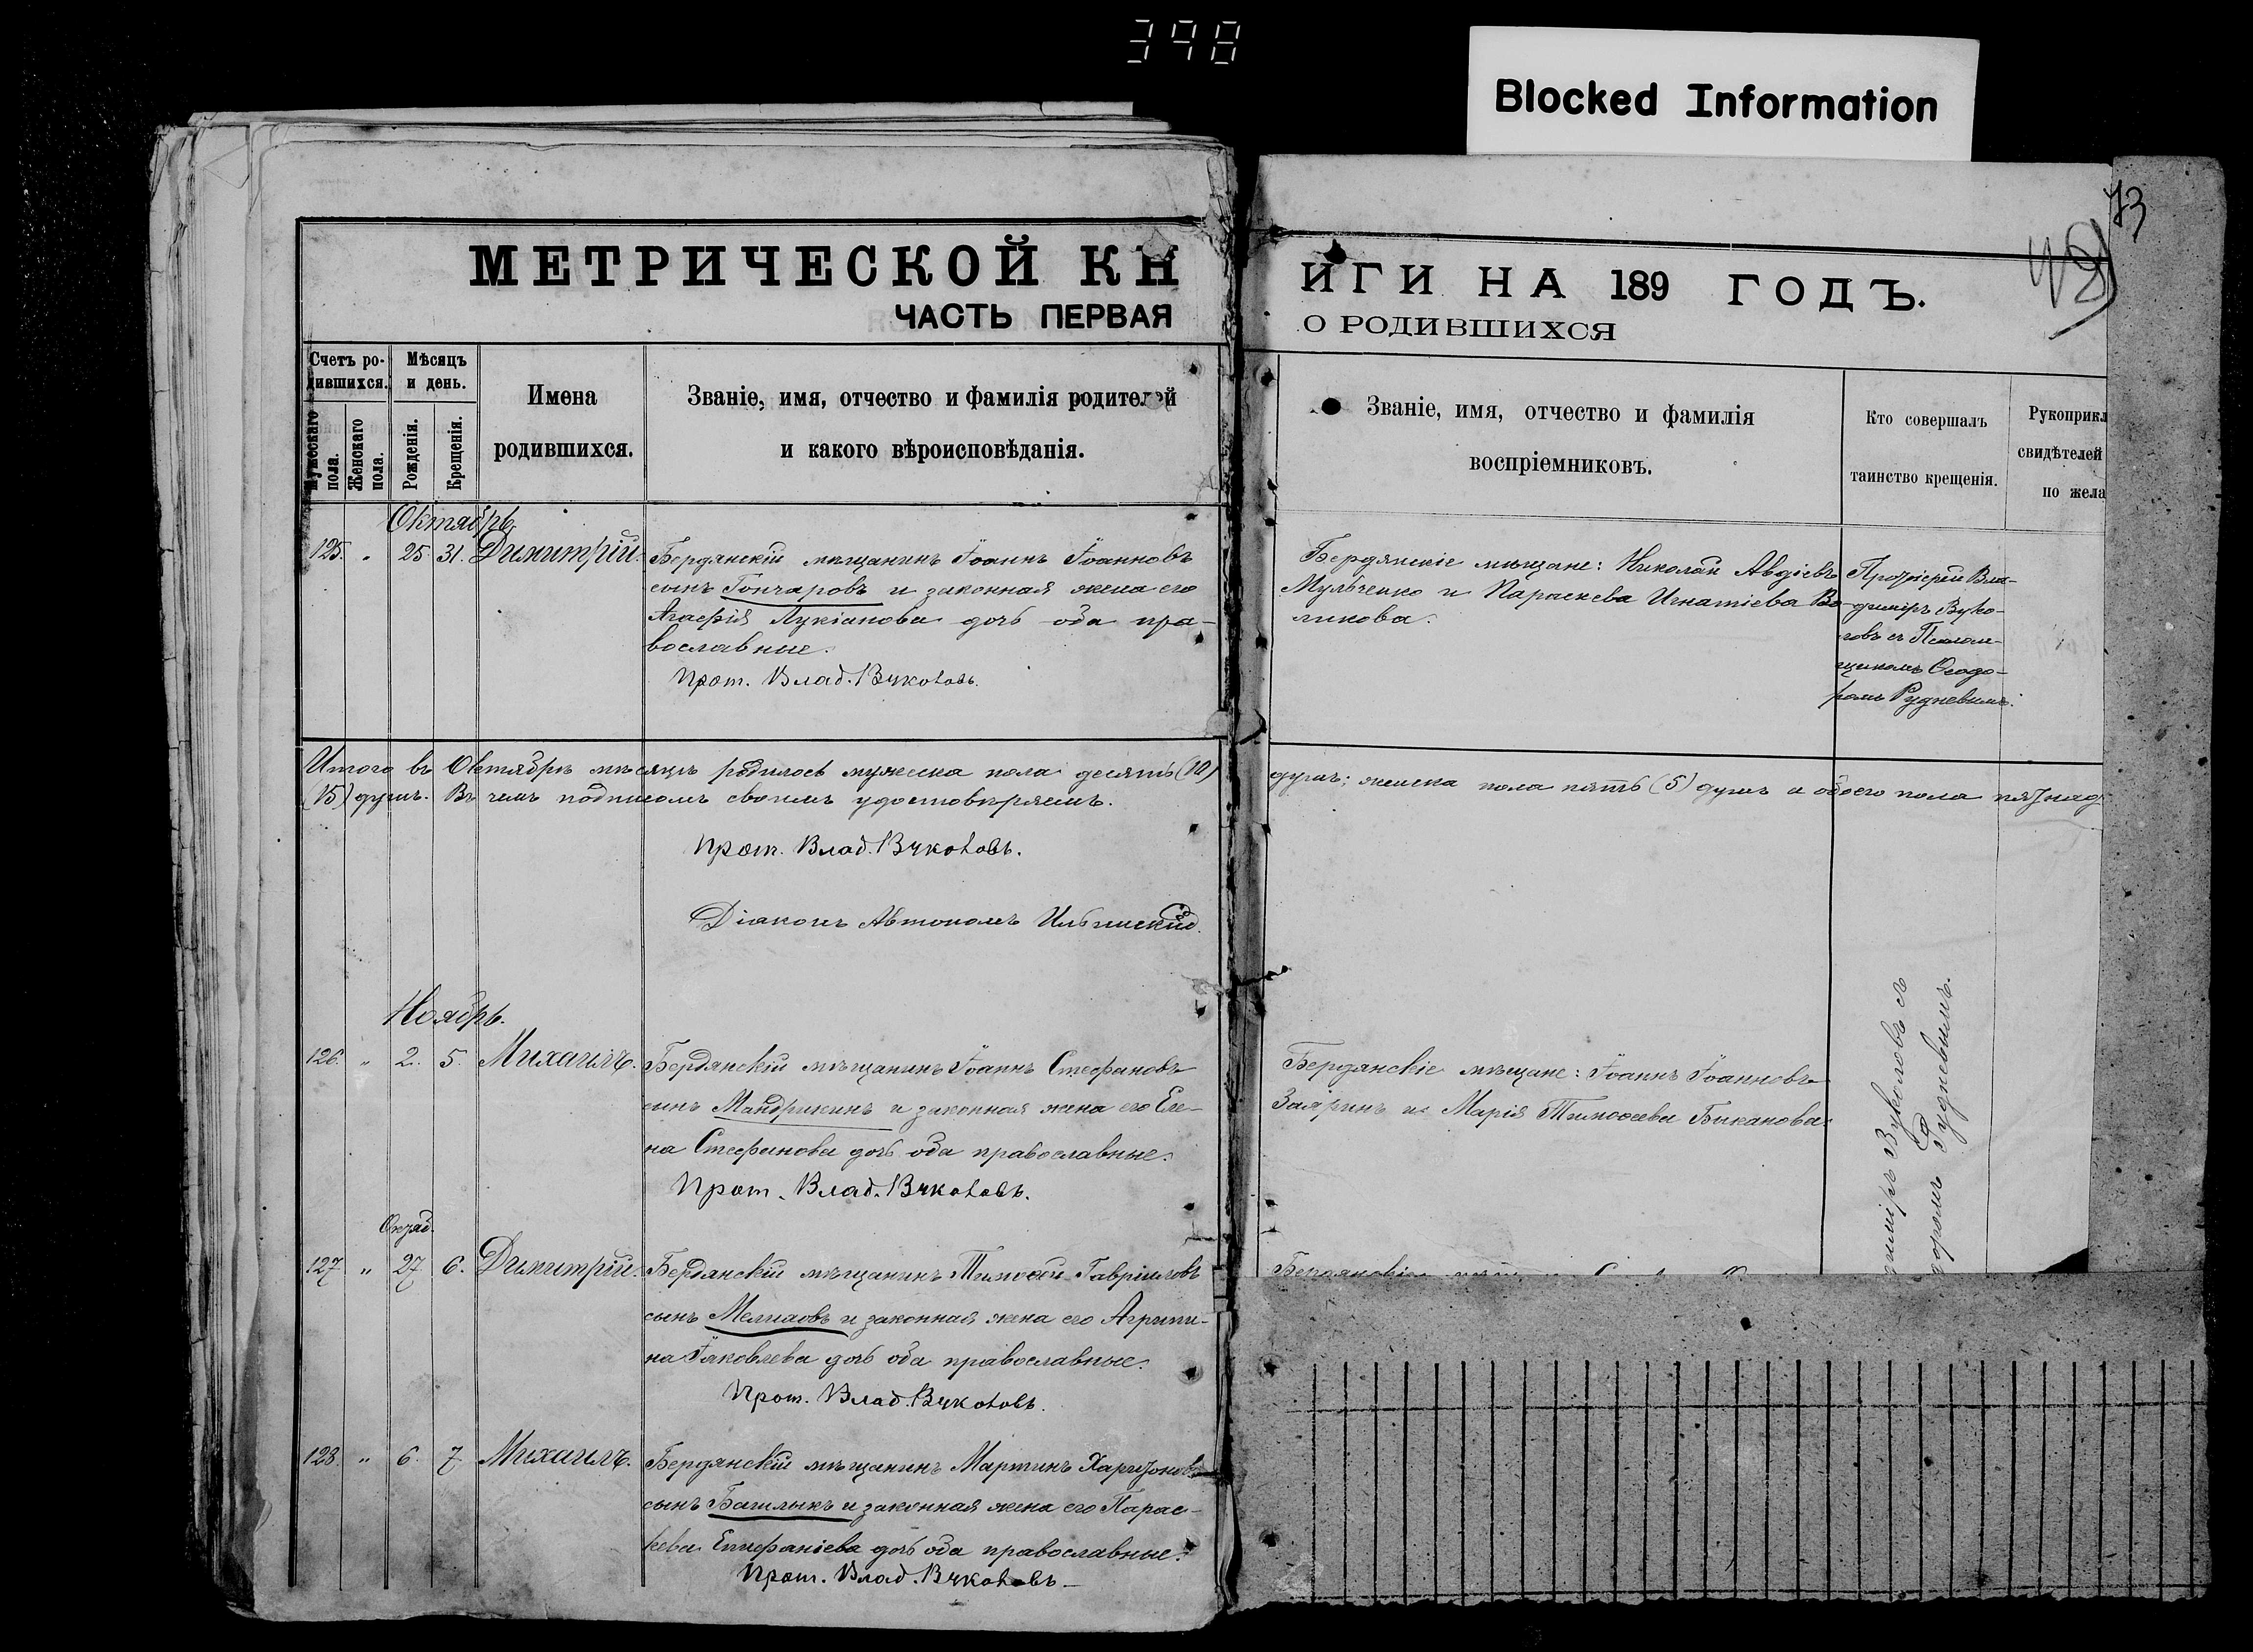 398
Blocked Information
73
МЕТРИЧЕСКОЙ КН
ИГИ НА 189 ГОДЪ.
ЧАСТЬ ПЕРВАЯ
О РОДИВШИХСЯ
Счетъ ро-
дившихся.
Мужескаго
пола.
Женскаго
пола.
Мѣсяцъ
и день.
Рожденія.
Крещенія.
Имена
родившихся.
Званіе, имя, отчество и фамилія родителей
и какого вѣроисповѣданія.
Званіе, имя, отчество и фамилія
воспріемниковъ.
Кто совершалъ
таинство крещенія.
Рукоприкл
свидѣтелей
по жела
Октябрь
125. „ 25. 31. Димитрій.
Бердянскій мѣщанинъ Іоаннъ Іоанновъ
сынъ Гончаровъ и законная жена его
Агафія Лукіанова дочь оба пра-
вославные.
Прот. Влад. Вуколовъ.
Бердянскіе мѣщане: Николай Авдіевъ
Мульченко и Параскева Игнатіева Во-
ликова.
Протоіерей Вла-
диміръ Вуко-
ловъ съ Псалом-
щикомъ Ѳеодо-
ромъ Рудневымъ.
Итого въ Октябрѣ мѣсяцѣ родилось мужеска пола десять (10)
душъ; женска пола пять (5) душъ а обоего пола пятнад
(15) душъ. Въ чемъ подписомъ своимъ удостовѣряемъ.
Прот. Влад. Вуколовъ.
Діаконъ Автономъ Ильинскій.
Ноябрь.
126. „ 2. 5. Михаилъ.
Бердянскій мѣщанинъ Іоаннъ Стефановъ
сынъ Мандрикинъ и законная жена его Еле-
на Стефанова дочь оба православные.
Прот. Влад. Вуколовъ.
Бердянскіе мѣщане: Іоаннъ Іоанновъ
Заяринъ и Марія Тимоѳеева Биканова.
диміръ Вуколовъ съ
доромъ Рудневымъ.
Октяб.
127. „ 27. 6. Димитрій.
Бердянскій мѣщанинъ Тимоѳей Гавріиловъ
сынъ Мелиховъ и законная жена его Агрипи-
на Іаковлева дочь оба православные.
Прот. Влад. Вуколовъ.
Бердянскіе
128. „ 6. 7. Михаилъ.
Бердянскій мѣщанинъ Мартинъ Харитоновъ
сынъ Башлыкъ и законная жена его Парас-
кева Епифаніева дочь оба православные.
Прот. Влад. Вуколовъ